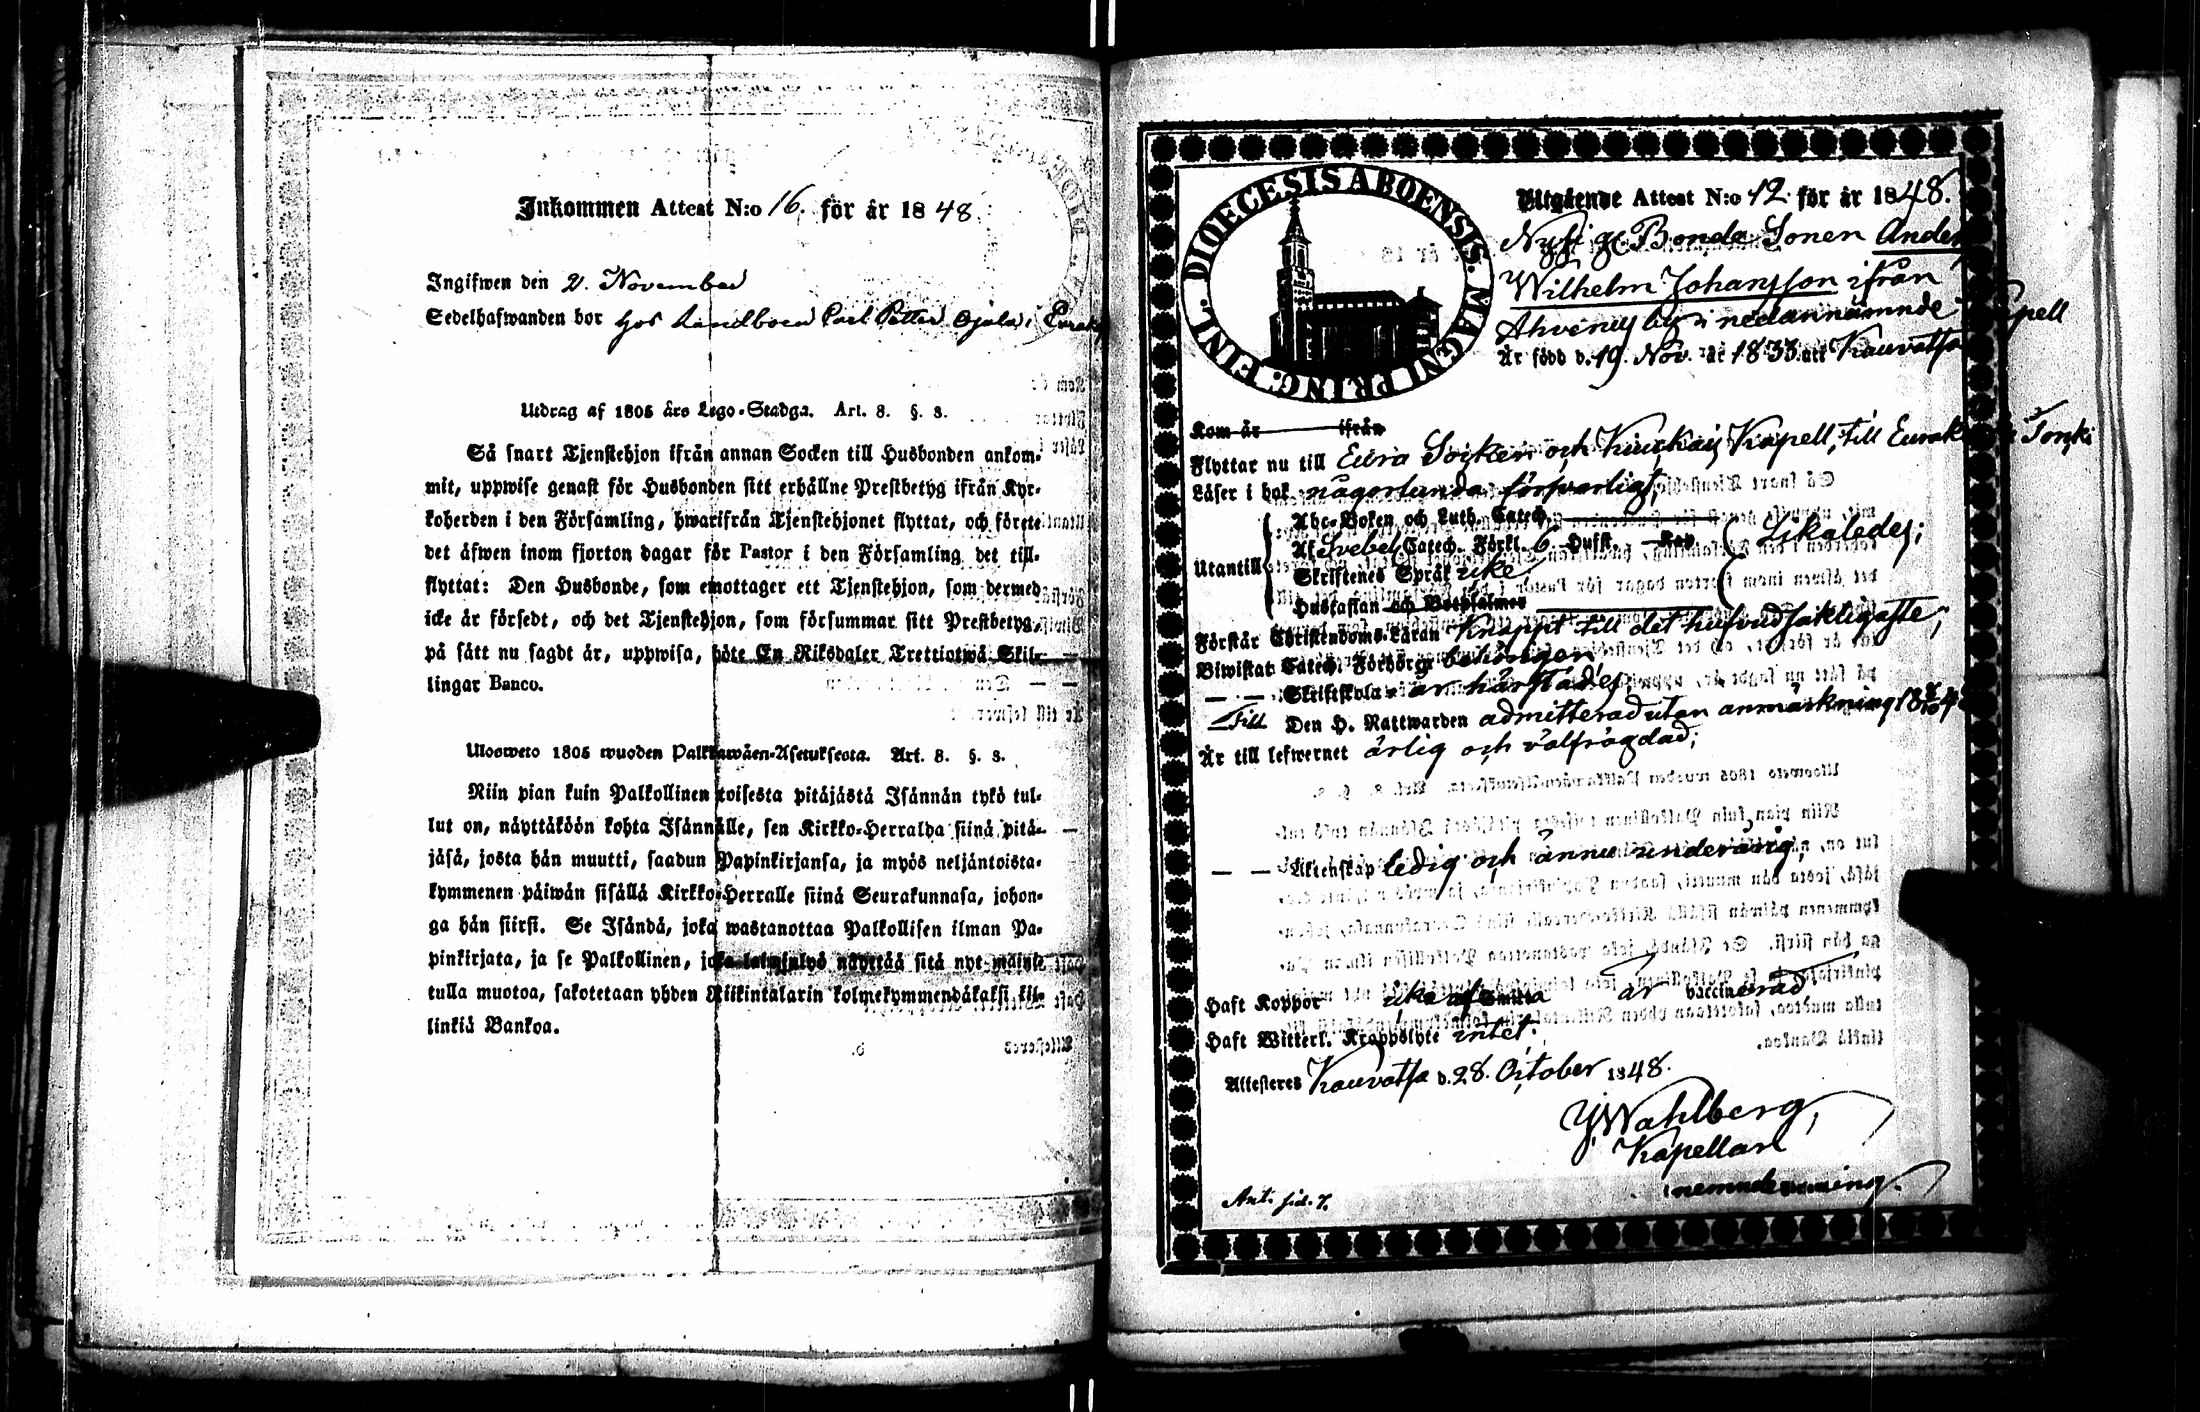 Inkommen Attest N:o 16. för år 1848
Ingifwen den 2. November
Sedelhafwanden bor hos Landboen Carl Petter Ojala i
Utdrag af 1805 års Lego-Stadga. Art. 8. §. 8.
Så snart Tjenstehjon ifrån annan Socken till Husbonden ankom-
mit, uppwise genast för Husbonden sitt erhållne Prestbetyg ifrån Kyr-
koherden i den Församling, hwarifrån Tjenstehjonet flyttat, och förete
det äfwen inom fjorton dagar för Pastor i den Församling det till-
flyttat: Den Husbonde, som emottager ett Tjenstehjon, som dermed
icke är försedt, och det Tjenstehjon, som försummar sitt Prestbetyg,
på sätt nu sagdt är, uppwisa, böte En Riksdaler Trettiotwå Skil-
lingar Banco.
Ulosweto 1805 wuoden Palkkawäen-Asetuksesta. Art. 8. §. 8.
Niin pian kuin Palkollinen toisesta pitäjästä Isännän tykö tul-
lut on, näyttäköön kohta Isännälle, sen Kirkko-Herralda siinä pitä-
jäsä, josta hän muutti, saadun Papinkirjansa, ja myös neljäntoista-
kymmenen päiwän sisällä Kirkko-Herralle siinä Seurakunnasa, johon-
ga hän siirsi. Se Isändä, joka wastanottaa Palkollisen ilman Pa-
pinkirjata, ja se Palkollinen, joka laiminlyö näyttää sitä nyt mainit-
tulla muotoa, sakotetaan yhden Riikintalarin kolmekymmendäkaksi kil-
linkiä Bankoa.
DIOECESIS ABOENSIS. MAGNI PRINC. FINL.
Utgående Attest N:o 12. för år 1848.
Bonde Sonen
Wilhelm Johansson ifrån
by i nedannämnde Kapell
Är född d. 19. Nov. år 1833 att Kauvatsa
Kom år ifrån
Flyttar nu till Eura Socken och Kapell, till
Läser i bok någorlunda försvarligt,
Abc-Boken och Luth. Catech.
Af Svebel. Catech. Förkl. 6. Hufst. Kap. Likaledes;
Utantill
Skriftenes Språk icke
Hustaflan och Botpsalmer
Förstår Christendoms-Läran knappt till det hufvudsakligaste;
Biwistat Catech. Förhörer behörigen
— — Skriftskola
Till Den H. Nattwarden admitterad utan anmärkning
Är till lefwernet ärlig och välfrägdad;
— — Äktenskap ledig och ännu underårig;
Haft Koppor icke af Smitta är vaccinerad
Haft Witterl. Kroppslyte intet.
Attesteres Kauvatsa d. 28. October 1848.
Wahlberg,
Kapellan
Ant. sid. 7.